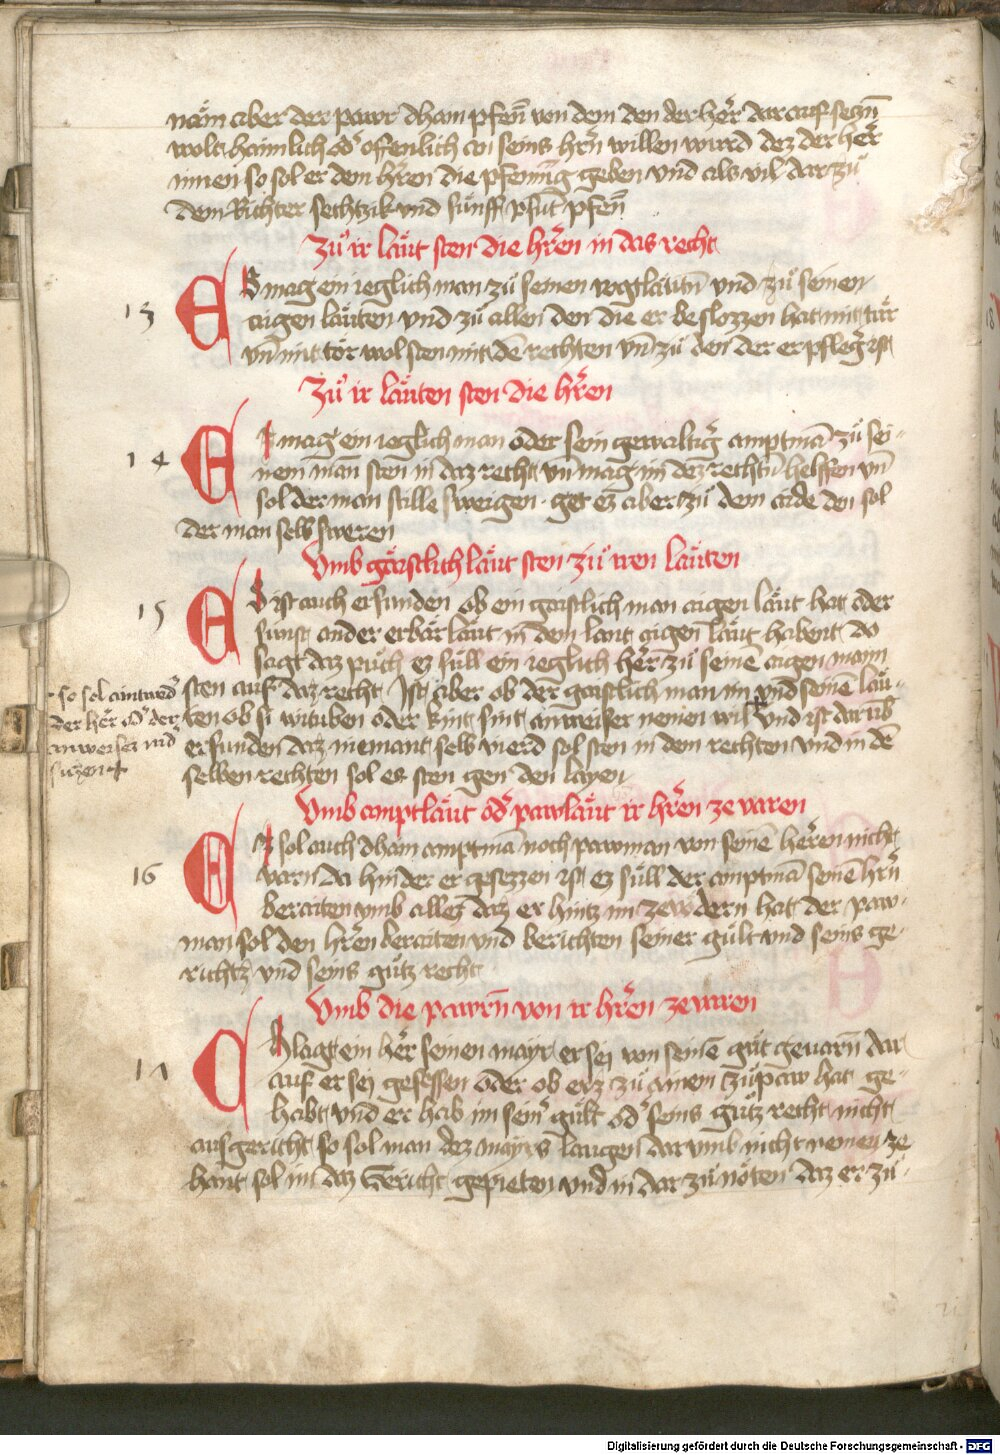 näm aber der pawr dhain pfen̄ von dem den der he᷑r dar auf seczn̄
wolt haimlich od᷑ offenlich an seins hr̄n willen wurd dez der her᷑
innen so sol er dem hr̄ren die pfenni̅g geben vnd als vil dar zuͦ
dem Richter sechtzik vnd fünff pfūt pfen̄
Zuͦ ir läut sten die hr̄en in das recht
13 ES mag ein ieglich man zuͦ seinen vogtläutn̄ vnd zuͦ seinen
aigen läuten vnd zuͦ allen den die er beslozzen hat mit tür
vn̄ mit tör wol sten mit dē rechten vn̄ zuͦ den der er pfleg᷑ ist
Zuͦ ir läuten sten die hr̄en
14 Ez mag ein ieglich man oder sein gewaltig᷑ amptmā zuͦ sei-
nem man̄ sten in daz recht vn̄ mag im dez rechtn̄ helffen vn̄
sol der man stille sweigen · get ez aber zuͦ dem aide den sol
der man selb sweren
Vmb gäistlich läut sten zuͦ iren läuten
15 Es ist auch erfunden ob ein gaistlich man aigen läut hat oder
sunst ander erbär läut in dem lant aigen läut habent do
sagt daz puͦch ez süll ein ieglich her᷑ zuͦ seinē aigen mann
sten auf daz recht Ist aber ob der gaistlich man im vnd seinē läu-
ten ob si wituben oder kint sint anweiser nemen wil vnd ist darub᷑
erfunden daz niemant selb vierd sol sten in dem rechten vnd in dē
selben rechten sol es sten gen den layen
so sol aintwed᷑
der her᷑ od᷑ der
anweiser nid᷑
siczen +
Vmb amptläut od᷑ pawläut ir hr̄en ze varen
16 Ez sol auch dhain amptmā noch pawman von seinē herren nicht
varn da hinder er gesezzen ist ez süll der amptmā seinē hr̄n
beraiten vmb allez daz er hintz im ze vodern hat der paw-
man sol den hr̄en beraiten vnd berichten seiner gült vnd seins ge-
richtz vnd seins guͦtz recht
Vmb die pawrn̄ von ir hr̄en ze varen
17 Chlagt ein her᷑ seinen mayr er sej von seinē guͦt geuarn̄ dar
auf er sej gesessen oder ob erz zuͦ ainem zuͦpaw hat ge-
habt vnd er hab im sein᷑ gült od᷑ seins guͦtz recht nicht
ausgericht so sol man dez mayrs laugen dar vmb nicht nemen ze
hant sol im daz Gericht gepieten vnd in dar zuͦ nöten daz er zuͦ-
Digitalisierung gefördert durch die Deutsche Forschungsgemeinschaft - DFG